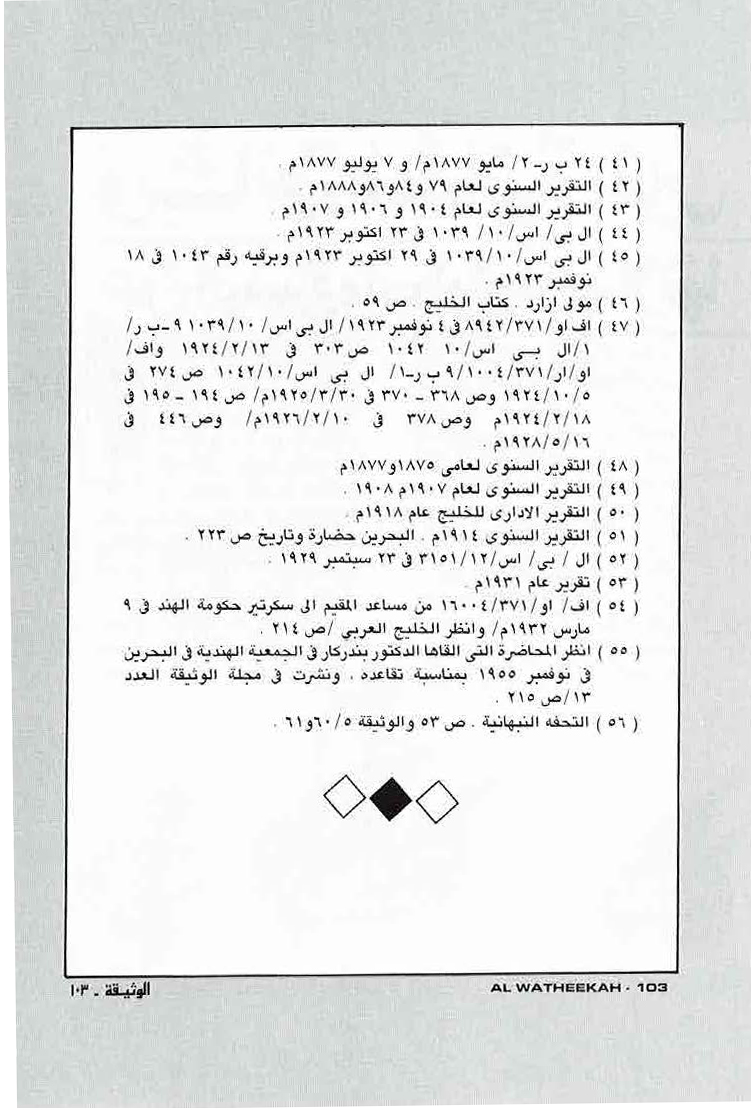 ( ٤١ ) ٢٤ ب ر_ ٢/ مايو ١٨٧٧م/ و ٧ يوليو ١٨٧٧م .
( ٤٢ ) التقرير السنوى لعام ٧٩ و٨٤و٨٦و١٨٨٨م .
( ٤٣ ) التقرير السنوى لعام ١٩٠٤ و ١٩٠٦ و ١٩٠٧م .
( ٤٤ ) ال بى/ اس/١٠/ ١٠٣٩ فى ٢٣ اكتوبر ١٩٢٣م .
( ٤٥ ) ال بى اس/١٠/١٠٣٩ فى ٢٩ اكتوبر ١٩٢٣م وبرقيه رقم ١٠٤٣ فى ١٨
نوفمبر ١٩٢٣م .
( ٤٦ ) مولى ازارد . كتاب الخليج . ص ٥٩ .
( ٤٧ ) اف او/٨٩٤٢/٣٧١ فى ٤ نوفمبر ١٩٢٣/ ال بى اس/ ١٠٣٩/١٠ ٩ _ب ر/
١/ال بــى اس/١٠ ١٠٤٢ ص٣٠٣ فى ١٩٢٤/٢/١٣ واف/
او/ار/٩/١٠٠٤/٣٧١ ب ر_١/ ال بى اس/١٠٤٢/١٠ ص ٢٧٤ فى
١٩٢٤/١٠/٥ وص ٣٦٨ _ ٣٧٠ فى ١٩٢٥/٣/٣٠م/ ص ١٩٤ _ ١٩٥ فى
١٩٢٤/٢/١٨م وص ٣٧٨ فى ١٩٢٦/٢/١٠م/ وص ٤٤٦ فى
١٩٢٨/٥/١٦م .
( ٤٨ ) التقرير السنوى لعامى ١٨٧٥و١٨٧٧م
( ٤٩ ) التقرير السنوى لعام ١٩٠٧م ١٩٠٨ .
( ٥٠ ) التقرير الادارى للخليج عام ١٩١٨م .
( ٥١ ) التقرير السنوى ١٩١٤م . البحرين حضارة وتاريخ ص ٢٢٣ .
( ٥٢ ) ال / بى/ اس/٣١٥١/١٢ فى ٢٣ سبتمبر ١٩٢٩ .
( ٥٣ ) تقرير عام ١٩٣١م .
( ٥٤ ) اف/ او/١٦٠٠٤/٣٧١ من مساعد المقيم الى سكرتير حكومة الهند فى ٩
مارس ١٩٣٢م/ وانظر الخليج العربي /ص ٢١٤ .
( ٥٥ ) انظر المحاضرة التى القاها الدكتور بندركار فى الجمعية الهندية فى البحرين
فى نوفمبر ١٩٥٥ بمناسبة تقاعده . ونشرت فى مجلة الوثيقة العدد
١٣/ص ٢١٥ .
( ٥٦ ) التحفه النبهانية . ص ٥٣ والوثيقة ٦٠/٥و٦١ .
الوثيقة _ ١٠٣
AL WATHEEKAH - 103